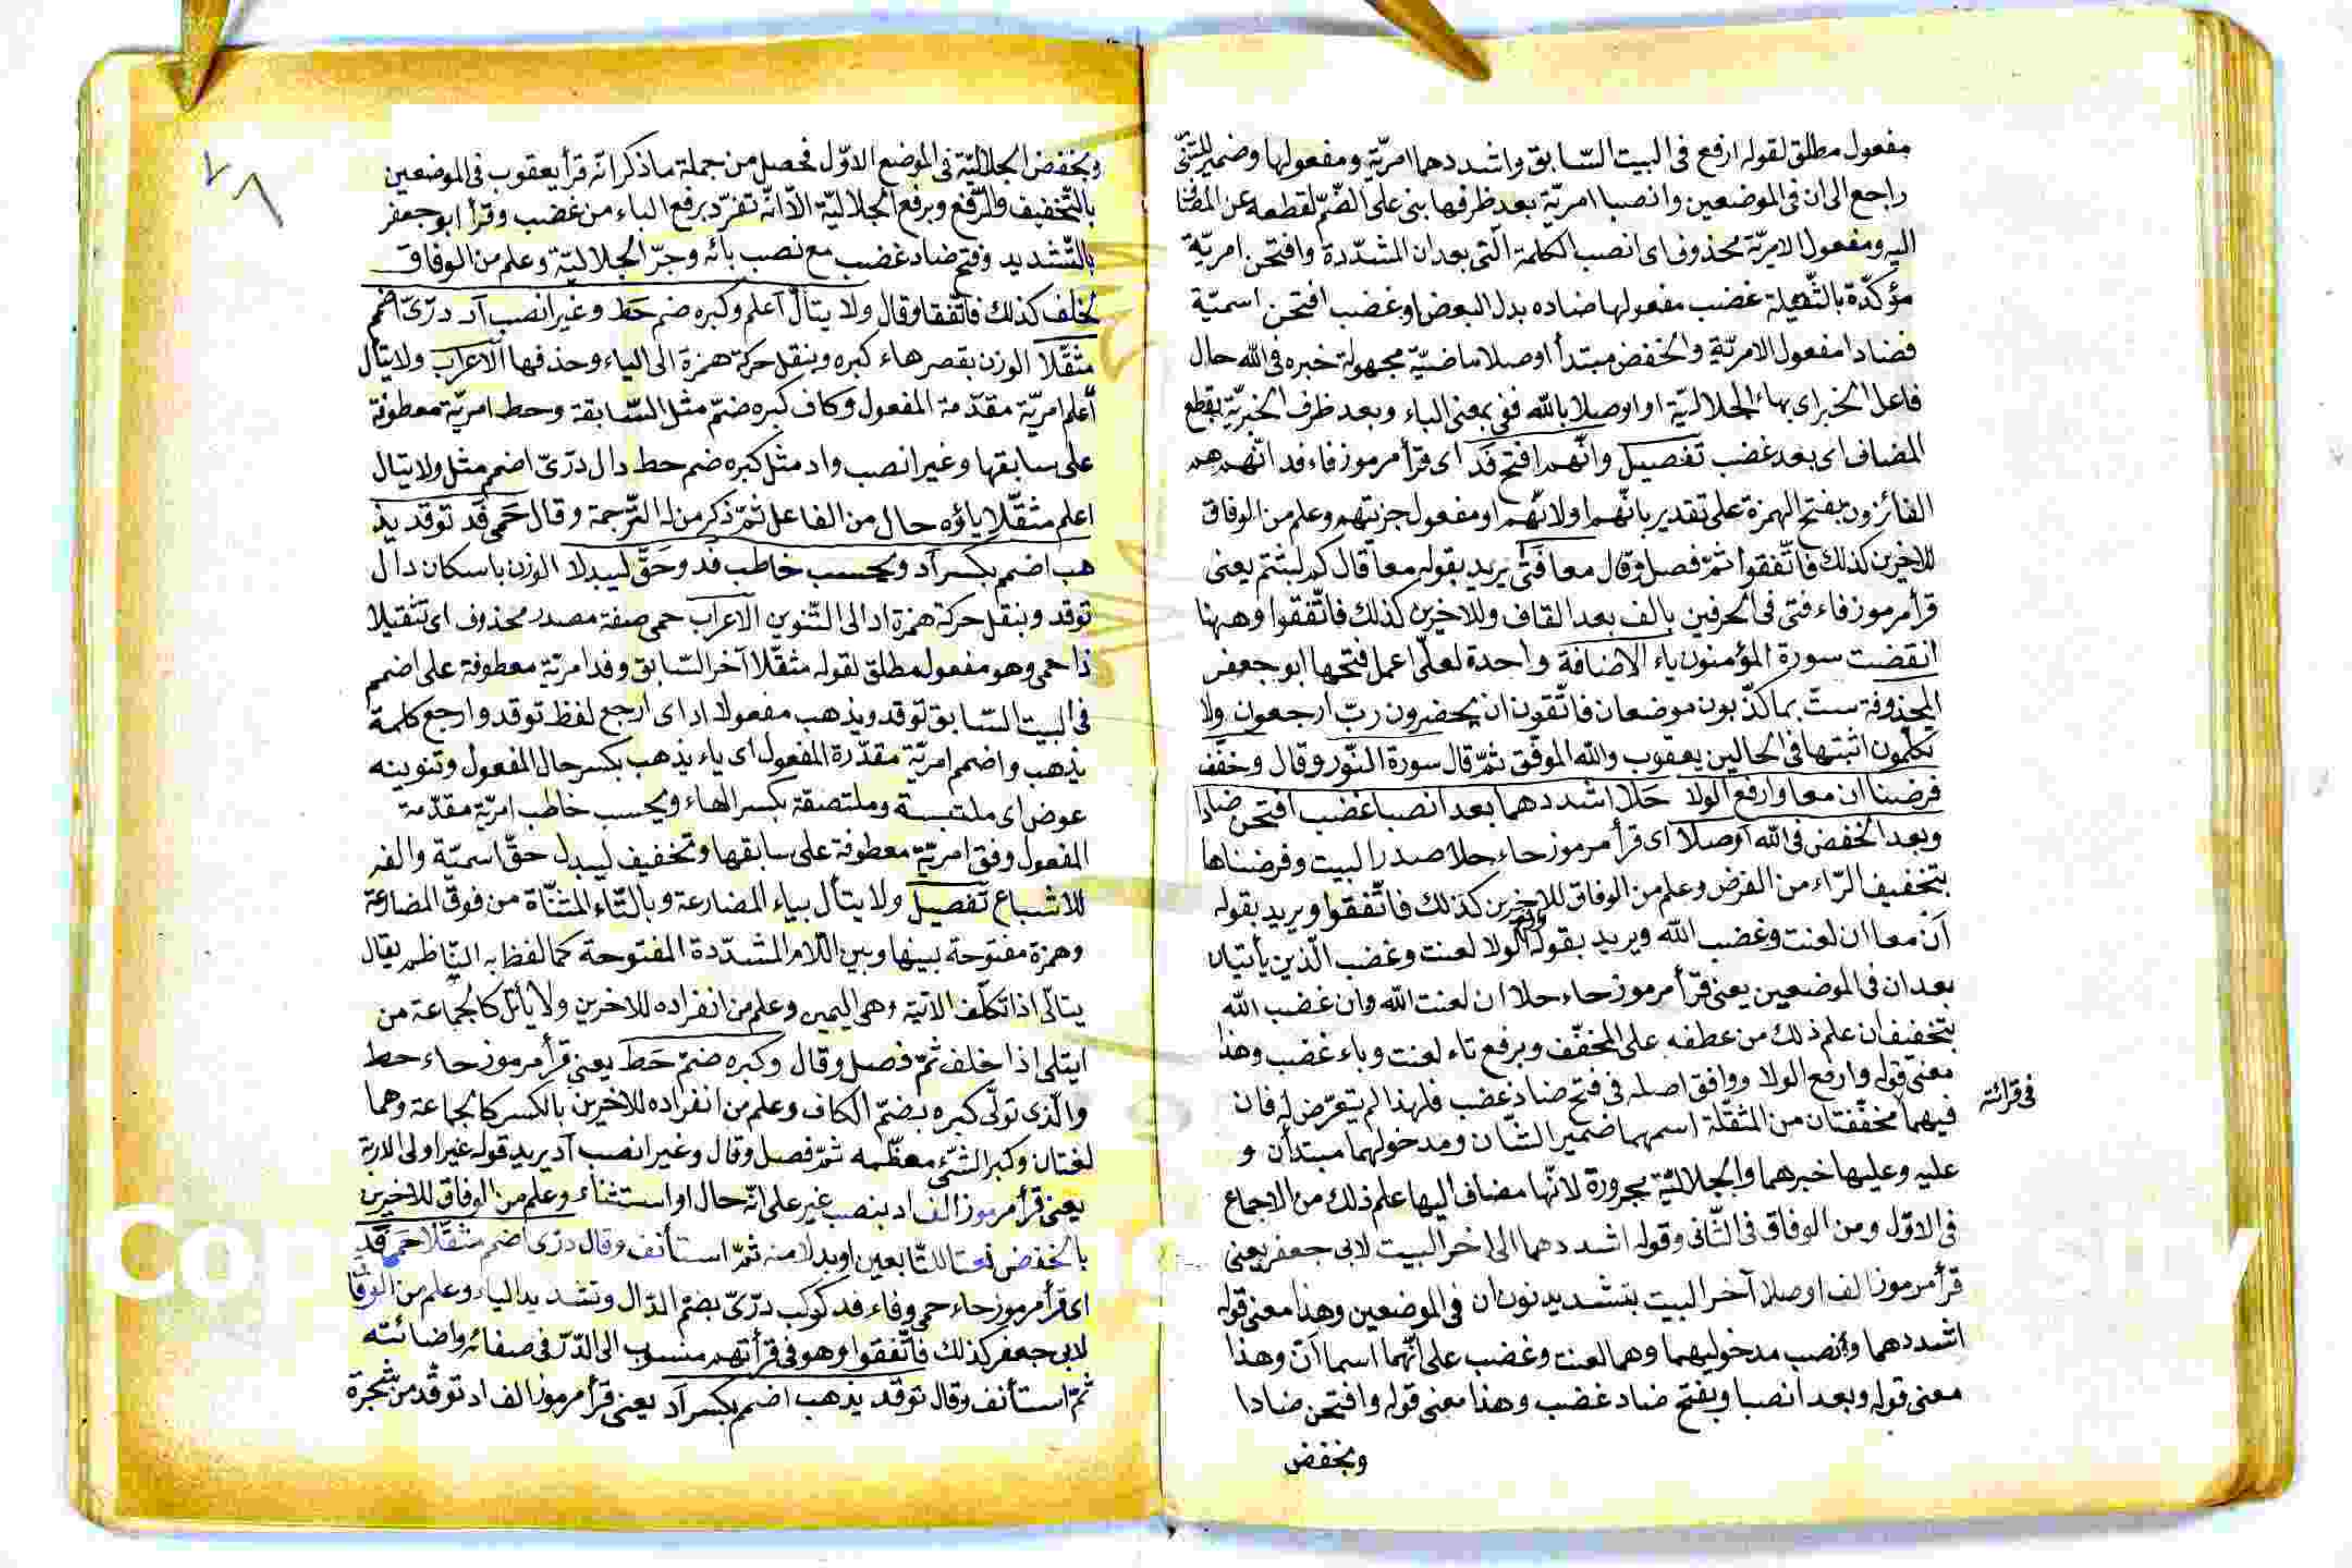 مفعول مطلق لقوله ارفع فى البيت السّابق واشددهما امريّة ومفعولها وضمير المثنّى
راجع الى ان فى الموضعين وانصبا امريّة بعد ظرفها بنى على الضّمّ لقطعه عن المضا
اليه ومفعول الامريّة محذوف اى انصب الكلمة الّتى بعد ان المشدّدة وافتحن امريّة
مؤكّدة بالثّقيلة غضب مفعولها ضاده بدل البعض او غضب افتحن اسميّة
فضادا مفعول الامريّة والخفض مبتدأ اوصلا ماضيّة مجهولة خبره فى الله حال
فاعل الخبر اى بهاء الجلاليّة او اوصلا بالله ففى بمعنى الباء وبعد ظرف الخبريّة بقطع
المضاف اى بعد غضب تفصيل وانّهم افتح فد اى قرأ مرموز فاء فد انّهم هم
الفائزون بفتح الهمزة على تقدير بانّهم او لانّهم او مفعول جزيتهم وعلم من الوفاق
للاخرين كذلك فاتّفقوا ثمّ فصل وقال معا فتى يريد بقوله معا قال كم لبثتم يعنى
قرأ مرموز فاء فتى فى الحرفين بالف بعد القاف وللاخرين كذلك فاتّفقوا وههنا
انقضت سورة المؤمنون ياء الاضافة واحدة لعلّى اعمل فتحها ابو جعفر
المحذوفة ستّ بما كذّبون موضعان فاتّقون ان يحضرون ربّ ارجعون ولا
تكلّمون اثبتها فى الحالين يعقوب والله الموفّق ثمّ قال سورة النّور وقال وخفّف
فرضنا ان معا وارفع الولا حلا اشددهما بعد انصبا غضب افتحن ضادا
وبعد الخفض فى الله اوصلا اى قرأ مرموز حاء حلا صدر البيت وفرضناها
بتخفيف الرّاء من الفرض وعلم من الوفاق للاخرين كذلك فاتّفقوا ويريد بقوله
ان معا ان لعنت وغضب الله ويريد بقوله الولا لعنت وغضب الّذين يأتيان
بعد ان فى الموضعين يعنى قرأ مرموز حاء حلا ان لعنت الله وان غضب الله
بتخفيف ان علم ذلك من عطفه على المخفّف وبرفع تاء لعنت وباء غضب وهذا
معنى قوله وارفع الولا ووافق اصله فى فتح ضاد غضب فلهذا لم يتعرّض له فان
فى قرائته
فيهما مخفّفتان من المثقّلة اسمهما ضمير الشّان ومدخولهما مبتدأن و
عليه وعليها خبرهما والجلاليّة مجرورة لانّها مضاف اليها علم ذلك من الاجماع
فى الاوّل ومن الوفاق فى الثّانى وقوله اشددهما الى اخر البيت لابى جعفر يعنى
قرأ مرموز الف اوصلا آخر البيت بتشديد نون ان فى الموضعين وهذا معنى قوله
اشددهما وأنصب مدخوليهما وهما لعنت وغضب على انّهما اسما انّ وهذا
معنى قوله وبعد انصبا وبفتح ضاد غضب وهذا معنى قوله وافتحن ضادا
وبخفض
وبخفض الجلاليّة فى الموضع الاوّل فحصل من جملة ما ذكر انّه قرأ يعقوب فى الموضعين
بالتّخفيف والرّفع وبرفع الجلاليّة الاّ انّه تفرّد برفع الباء من غضب وقرأ ابو جعفر
بالتّشديد وفتح ضاد غضب مع نصب بائه وجرّ الجلاليّة وعلم من الوفاق
لخلف كذلك فاتّفقا وقال ولا يتألّ اعلم وكبره ضم حط وغير انصب اد درّىّ اضمم
مثقّلا الوزن بقصر هاء كبره وبنقل حركة همزة الى الياء وحذفها الاعراب ولا يتأل
اعلم امريّة مقدّمة المفعول وكاف كبره ضمّ مثل السّابقة وحط امريّة معطوفة
على سابقها وغير انصب واد مثل كبره ضم حط دال درّىّ اضمم مثل ولا يتال
اعلم مثقّلا ياؤه حال من الفاعل ثمّ ذكر من له التّرجمة وقال حمى فد توقد يذ
هب اضمم بكسر اد ويحسب خاطب فد وحقّ ليبدلا الوزن باسكان دال
توقد وبنقل حركة همزة اد الى التّنوين الاعراب حمى صفة مصدر محذوف اى تثقيلا
ذا حمى وهو مفعول مطلق لقوله مثقّلا آخر السّابق وفد امريّة معطوفة على اضمم
فى البيت السّابق توقد ويذهب مفعولا اد اى ارجع لفظ توقد وارجع كلمة
يذهب واضمم امريّة مقدّرة المفعول اى ياء يذهب بكسر حال المفعول وتنوينه
عوض اى ملتبسة وملتصقة بكسر الهاء ويحسب خاطب امريّة مقدّمة
المفعول وفق امريّة معطوفة على سابقها وتخفيف ليبدل حقّ اسميّة والفه
للاشباع تفصيل ولا يتأل بياء المضارعة وبالتّاء المثنّاة من فوق المضارعة
وهمزة مفتوحة بينها وبين اللّام المشدّدة المفتوحة كما لفظ به النّاظم يقال
يتالّى اذا تكلّف الاتية وهى اليمين وعلم من انفراده للاخرين ولا يأتل كالجماعة من
ايتلى اذا خلف ثمّ فصل وقال وكبره ضمّ حط يعنى قرأ مرموز حاء حط
والّذى تولّى كبره بضمّ الكاف وعلم من انفراده للاخرين بالكسر كالجماعة وهما
لغتان وكبر الشّئ معظّمه ثمّ فصل وقال وغير انصب اد يريد قوله غير اولى الاربة
يعنى قرأ مرموز الف اد بنصب غير على انّه حال او استثناء وعلم من الوفاق للاخرين
بالخفض نعتا للتّابعين او بدلا منه ثمّ استأنف وقال درّى اضمم مثقّلا حمى فد
اى قرأ مرموز حاء حمى وفاء فد كوكب درّىّ بضمّ الدّال وتشديد الياء وعلم من الوفا
لابى جعفر كذلك فاتّفقوا وهو فى قرأتهم منسوب الى الدّرّ فى صفائه واضائته
ثمّ استأنف وقال توقد يذهب اضمم بكسر اد يعنى قرأ مرموز الف اد توقد من شجرة